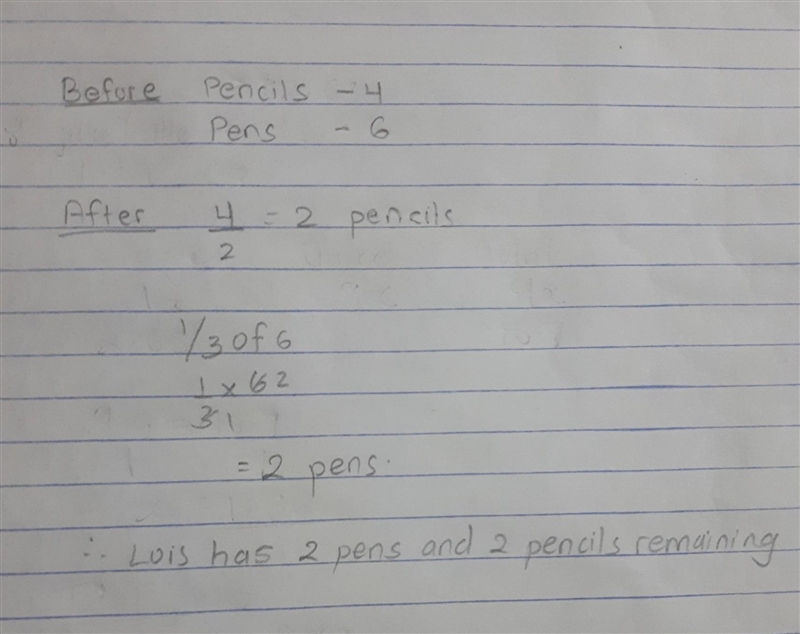 Before Pencils - 4
Pens - 6
After 4/2 = 2 pencils
1/3 of 6
1/3 1 x 6 2
= 2 pens.
∴ Lois has 2 pens and 2 pencils remaining